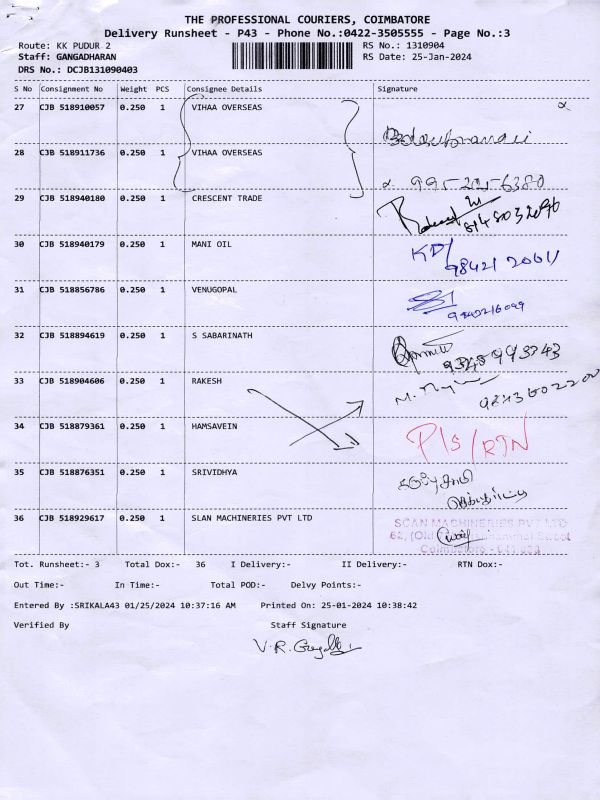 THE PROFESSIONAL COURIERS, COIMBATORE
Delivery Runsheet - P43 - Phone No.:0422-3505555 - Page No.:3
Route: KK PUDUR 2 RS No.: 1310904
Staff: GANGADHARAN RS Date: 25-Jan-2024
DRS No.: DCJB131090403
S No Consignment No Weight PCS Consignee Details Signature
27 CJB 518910057 0.250 1 VIHAA OVERSEAS
28 CJB 518911736 0.250 1 VIHAA OVERSEAS
29 CJB 518940180 0.250 1 CRESCENT TRADE
30 CJB 518940179 0.250 1 MANI OIL
31 CJB 518856786 0.250 1 VENUGOPAL
32 CJB 518894619 0.250 1 S SABARINATH
33 CJB 518904606 0.250 1 RAKESH
34 CJB 518879361 0.250 1 HAMSAVEIN P/S/RTN
35 CJB 518876351 0.250 1 SRIVIDHYA
36 CJB 518929617 0.250 1 SLAN MACHINERIES PVT LTD SCAN MACHINERIES PVT LTD
Tot. Runsheet:- 3 Total Dox:- 36 I Delivery:- II Delivery:- RTN Dox:-
Out Time:- In Time:- Total POD:- Delvy Points:-
Entered By :SRIKALA43 01/25/2024 10:37:16 AM Printed On: 25-01-2024 10:38:42
Verified By Staff Signature